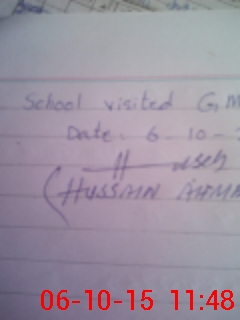 School visited G, M
Date. 6 - 10 -
(HUSSAIN AHMA
06-10-15 11:48